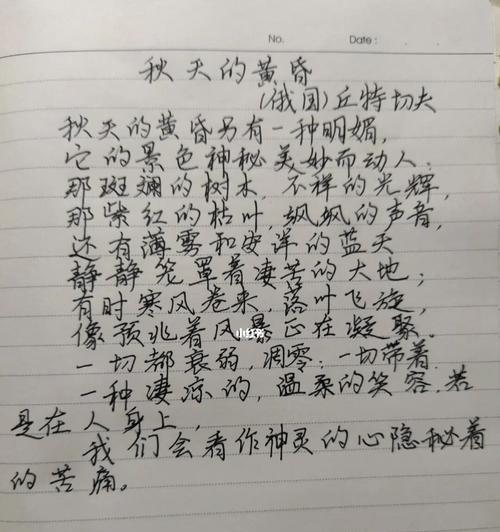 No.
Date:
秋天的黄昏
(俄国)丘特切夫
秋天的黄昏另有一种明媚,
它的景色神秘美妙而动人:
那斑斓的树木,不祥的光辉,
那紫红的枯叶,飒飒的声音,
还有薄雾和安详的蓝天
静静笼罩着凄苦的大地;
有时寒风卷来,落叶飞旋,
像预兆着风暴正在凝聚.
一切都衰弱,凋零;一切带着
一种凄凉的,温柔的笑容.若
是在人身上,
我们会看作神灵的心隐秘着
的苦痛。
小红书